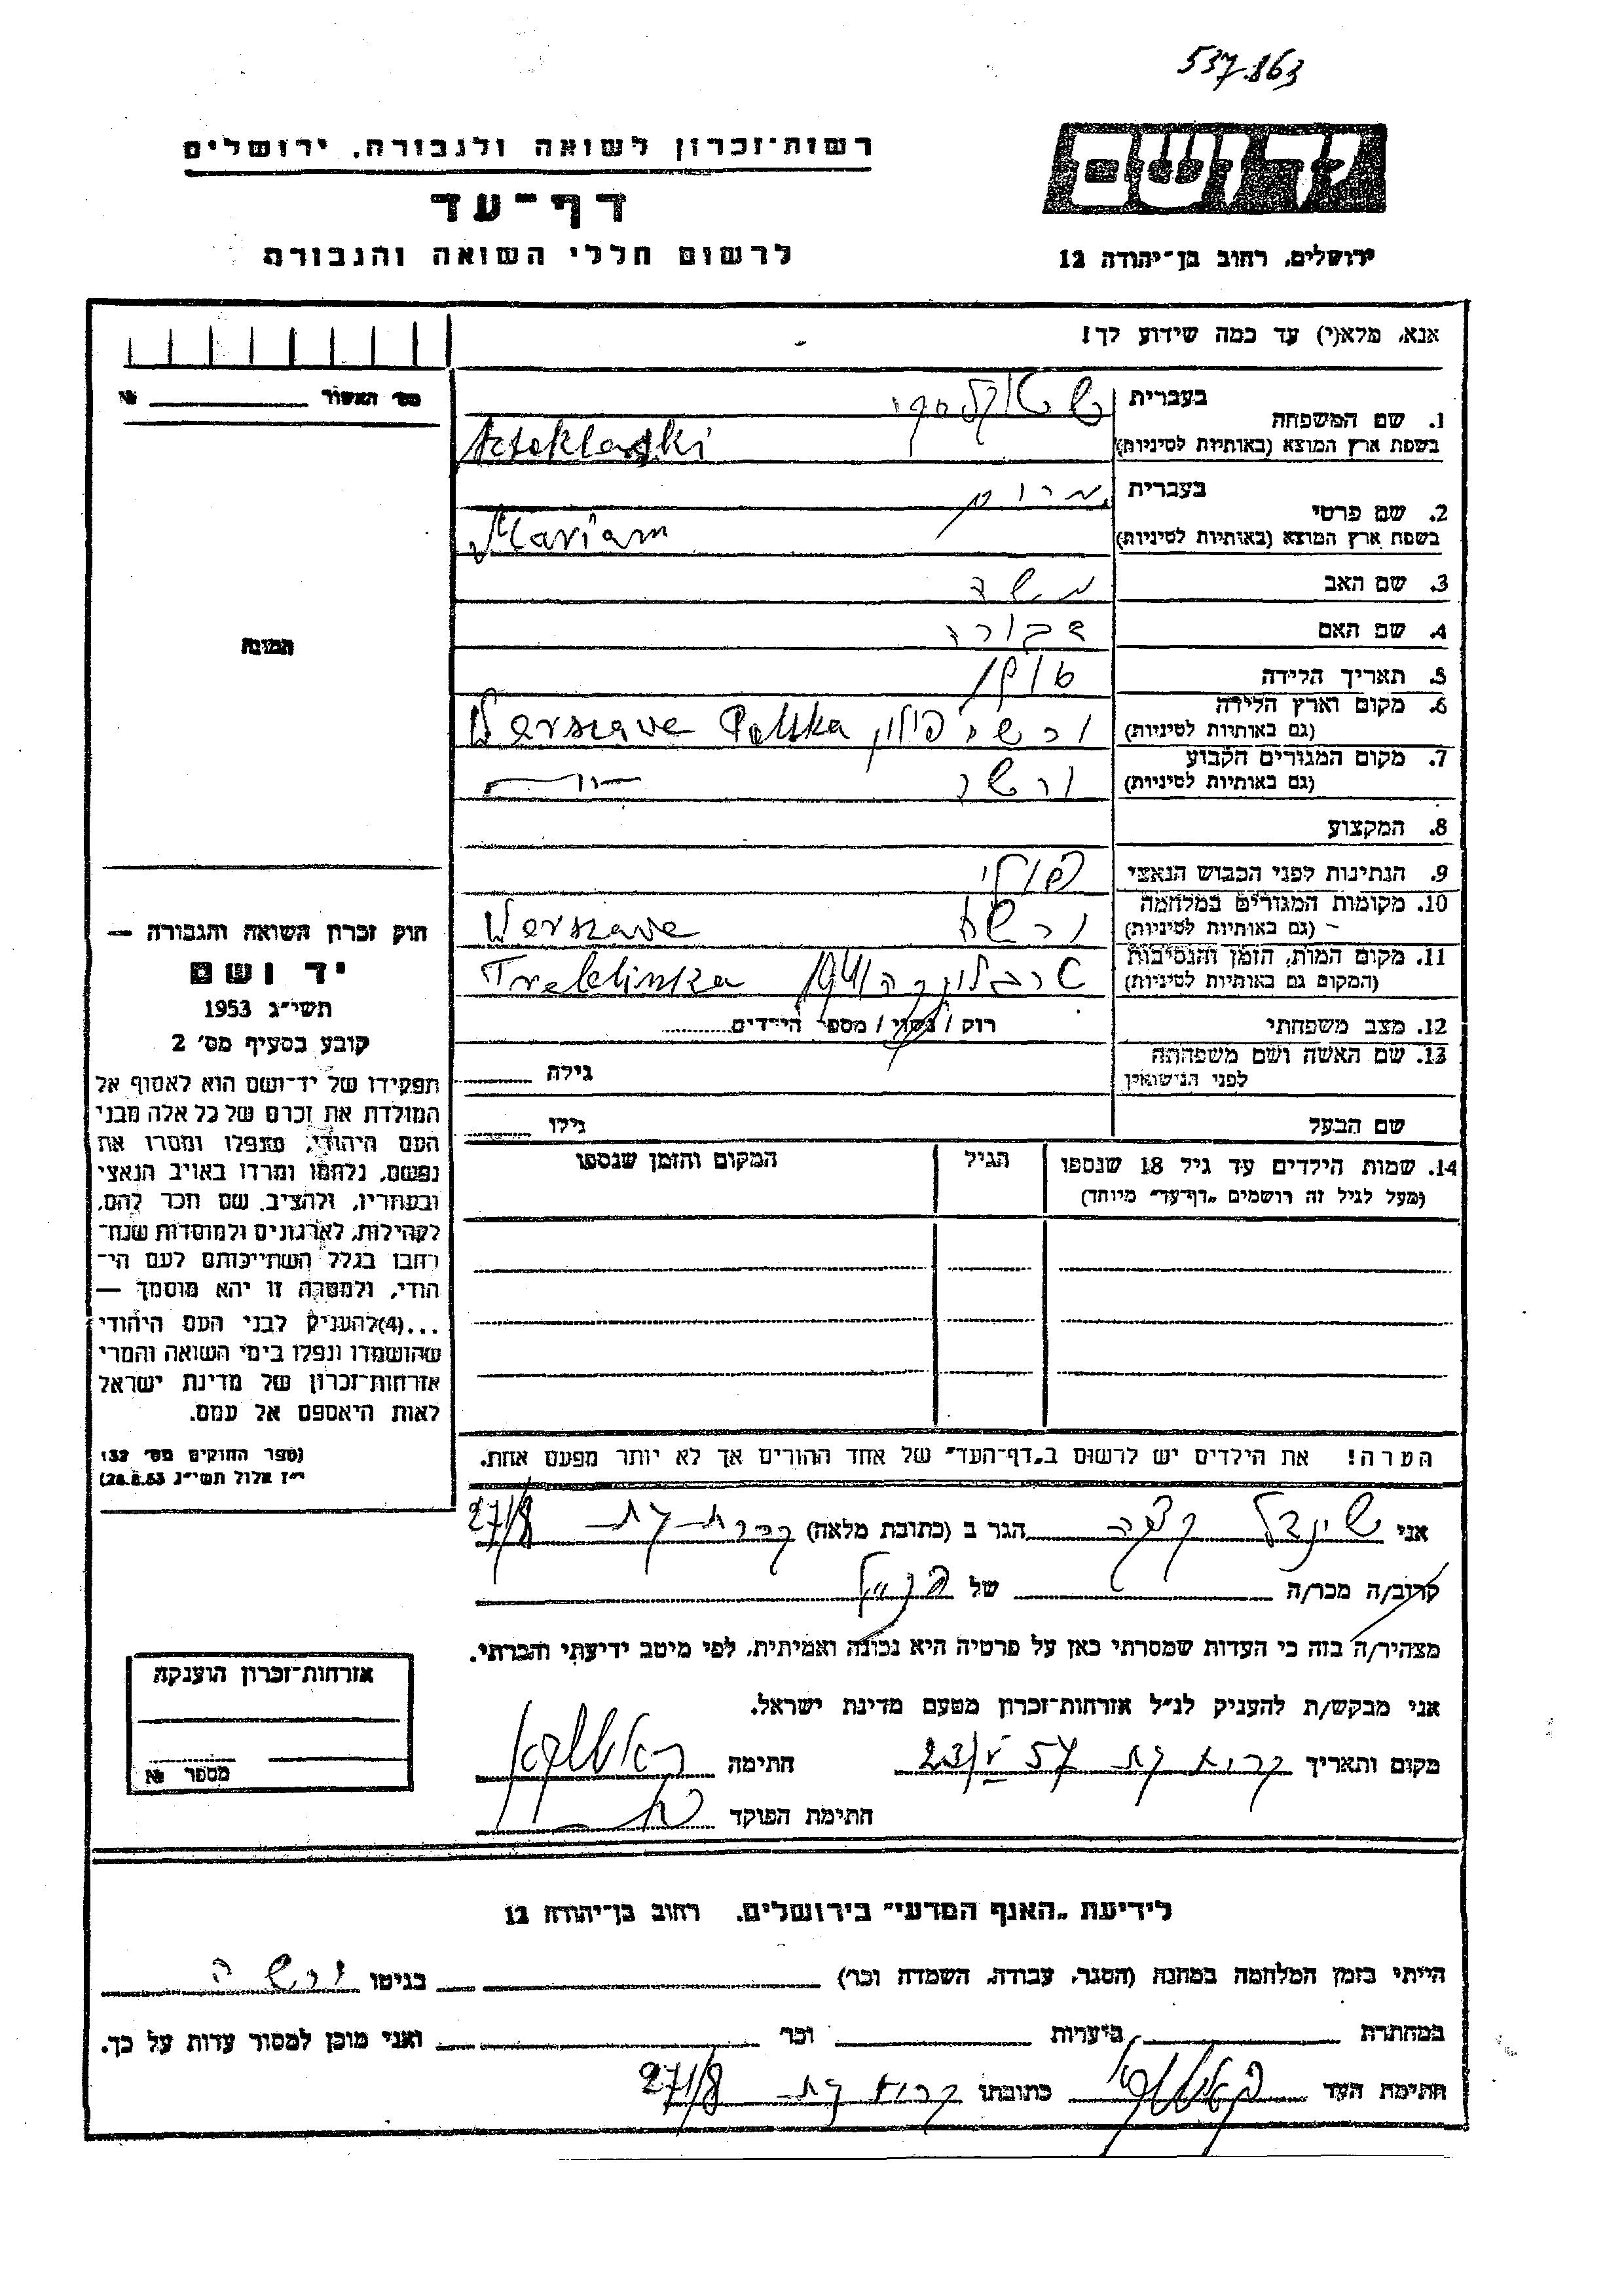 537.863
יד ושם
ירושלים, רחוב בן־יהודה 12
רשות־זכרון לשואה ולגבורה, ירושלים
דף־עד
לרשום חללי השואה והגבורה
אנא, מלא(י) עד כמה שידוע לך!
מס' האשור № 
1. שם המשפחה בעברית
בשפת ארץ המוצא (באותיות לטיניות)
2. שם פרטי בעברית מרים
בשפת ארץ המוצא (באותיות לטיניות) Mariam
3. שם האב משה
4. שם האם דבורה
5. תאריך הלידה
6. מקום וארץ הלידה
(גם באותיות לטיניות) ורשה פולין Warszawa Polska
7. מקום המגורים הקבוע
(גם באותיות לטיניות) ורשה
8. המקצוע
9. הנתינות לפני הכבוש הנאצי פולני
10. מקומות המגורים במלחמה
(גם באותיות לטיניות) ורשה Warszawa
11. מקום המות, הזמן והנסיבות
(המקום גם באותיות לטיניות) טרבלינקה 1941 Treblinka
12. מצב משפחתי רוק / נשוי / מספר הילדים
13. שם האשה ושם משפחתה
לפני הנישואין גילה
שם הבעל גילו
14. שמות הילדים עד גיל 18 שנספו הגיל המקום והזמן שנספו
(מעל לגיל זה רושמים "דף־עד" מיוחד)
הערה! את הילדים יש לרשום ב"דף־העד" של אחד ההורים אך לא יותר מפעם אחת.
התמונה
חוק זכרון השואה והגבורה —
יד ושם
תשי"ג 1953
קובע בסעיף מס' 2
תפקידו של יד־ושם הוא לאסוף אל
המולדת את זכרם של כל אלה מבני
העם היהודי, שנפלו ומסרו את
נפשם, נלחמו ומרדו באויב הנאצי
ובעוזריו, ולהציב שם וזכר להם,
לקהילות, לארגונים ולמוסדות שנח־
רבו בגלל השתייכותם לעם הי־
הודי, ולמטרה זו יהא מוסמך —
...(4) להעניק לבני העם היהודי
שהושמדו ונפלו בימי השואה והמרי
אזרחות־זכרון של מדינת ישראל
לאות היאספם אל עמם.
(ספר החוקים מס' 132
י"ז אלול תשי"ג 28.8.53)
אני הגר ב (כתובת מלאה) קרית גת 271/8
קרוב/ה מכר/ה של
מצהיר/ה בזה כי העדות שמסרתי כאן על פרטיה היא נכונה ואמיתית, לפי מיטב ידיעתי והכרתי.
אני מבקש/ת להעניק לנ"ל אזרחות־זכרון מטעם מדינת ישראל.
מקום ותאריך קרית גת 23/V 57 חתימה
חתימת הפוקד
אזרחות־זכרון הוענקה
מספר №
לידיעת "האגף המדעי" בירושלים, רחוב בן־יהודה 12
הייתי בזמן המלחמה במחנה (הסגר, עבודה, השמדה וכו') בגיטו ורשה
במחתרת ביערות וכו' ואני מוכן למסור עדות על כך.
חתימת העד כתובתו קרית גת 271/8